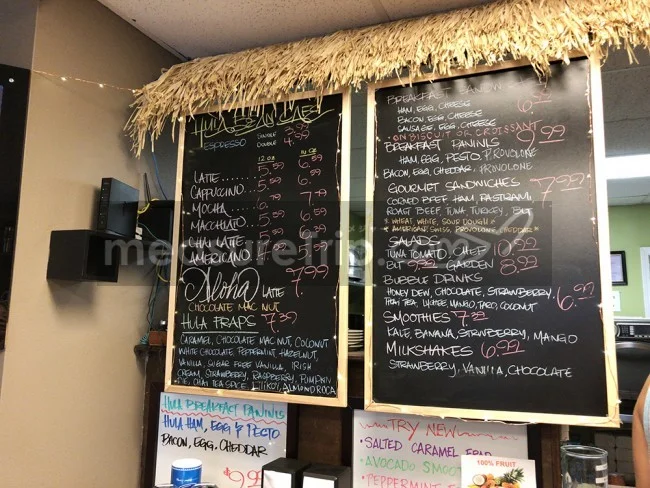 HULA
ESPRESSO SINGLE 3.99
DOUBLE 4.59
12 OZ
LATTE..... 5.59 6.59
CAPPUCCINO..... 5.59
MOCHA..... 7.79
MACCHIATO 5.59 6.59
CHAI LATTE
AMERICANO
Aloha LATTE 7.99
CHOCOLATE MAC NUT
HULA FRAPS 7.39
CARAMEL, CHOCOLATE MAC NUT, COCONUT
WHITE CHOCOLATE, PEPPERMINT, HAZELNUT,
VANILLA, SUGAR FREE VANILLA, IRISH
CREAM, STRAWBERRY, RASPBERRY, PUMPKIN
PIE, CHAI TEA SPICE, LILIKOI, ALMOND ROCA
BREAKFAST
HAM, EGG, CHEESE
BACON, EGG, CHEESE
SAUSAGE, EGG, CHEESE
• ON BISCUIT OR CROISSANT
BREAKFAST PANINIS 9.99
HAM, EGG, PESTO, PROVOLONE
BACON, EGG, CHEDDAR, PROVOLONE
GOURMET SANDWICHES 7.99
CORNED BEEF, HAM, PASTRAMI,
ROAST BEEF, TUNA, TURKEY, BLT
* WHEAT, WHITE, SOUR DOUGH *
* AMERICAN, SWISS, PROVOLONE, CHEDDAR *
SALADS
TUNA TOMATO, CHEF 10.99
BLT 9.99 GARDEN 8.99
BUBBLE DRINKS
HONEY DEW, CHOCOLATE, STRAWBERRY, 6.99
THAI TEA, LYCHEE, MANGO, TARO, COCONUT
SMOOTHIES 7.39
KALE, BANANA, STRAWBERRY, MANGO
MILKSHAKES 6.99
STRAWBERRY, VANILLA, CHOCOLATE
HULA BREAKFAST PANINIS
HULA HAM, EGG & PESTO
BACON, EGG, CHEDDAR
$9
TRY NEW
• SALTED CARAMEL FRAP
• AVOCADO SMOOT
• PEPPERMINT
100% FRUIT